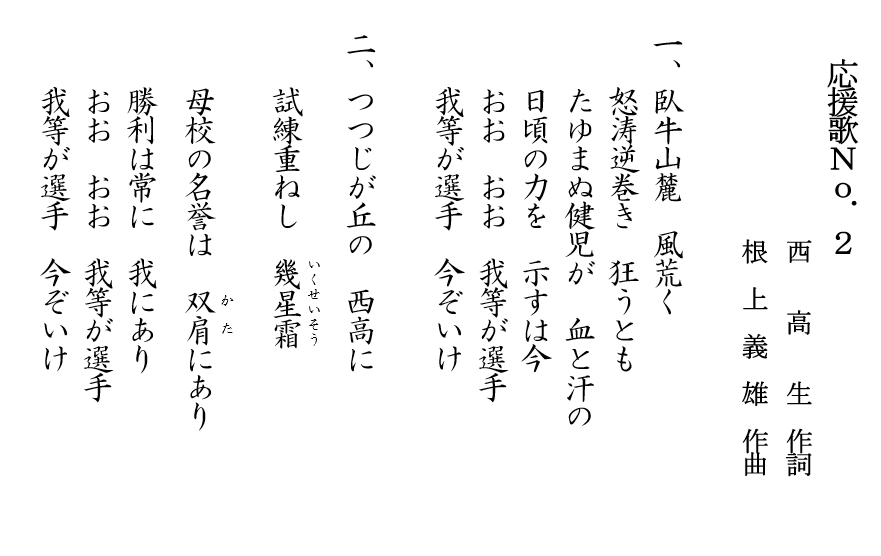 応援歌Ｎｏ．２
西高生 作詞
根上義雄 作曲
一、臥牛山麓　風荒く
怒涛逆巻き　狂うとも
たゆまぬ健児が　血と汗の
日頃の力を　示すは今
おお　おお　我等が選手
我等が選手　今ぞいけ
二、つつじが丘の　西高に
試練重ねし　幾星霜
いくせいそう
母校の名誉は　双肩にあり
かた
勝利は常に　我にあり
おお　おお　我等が選手
我等が選手　今ぞいけ